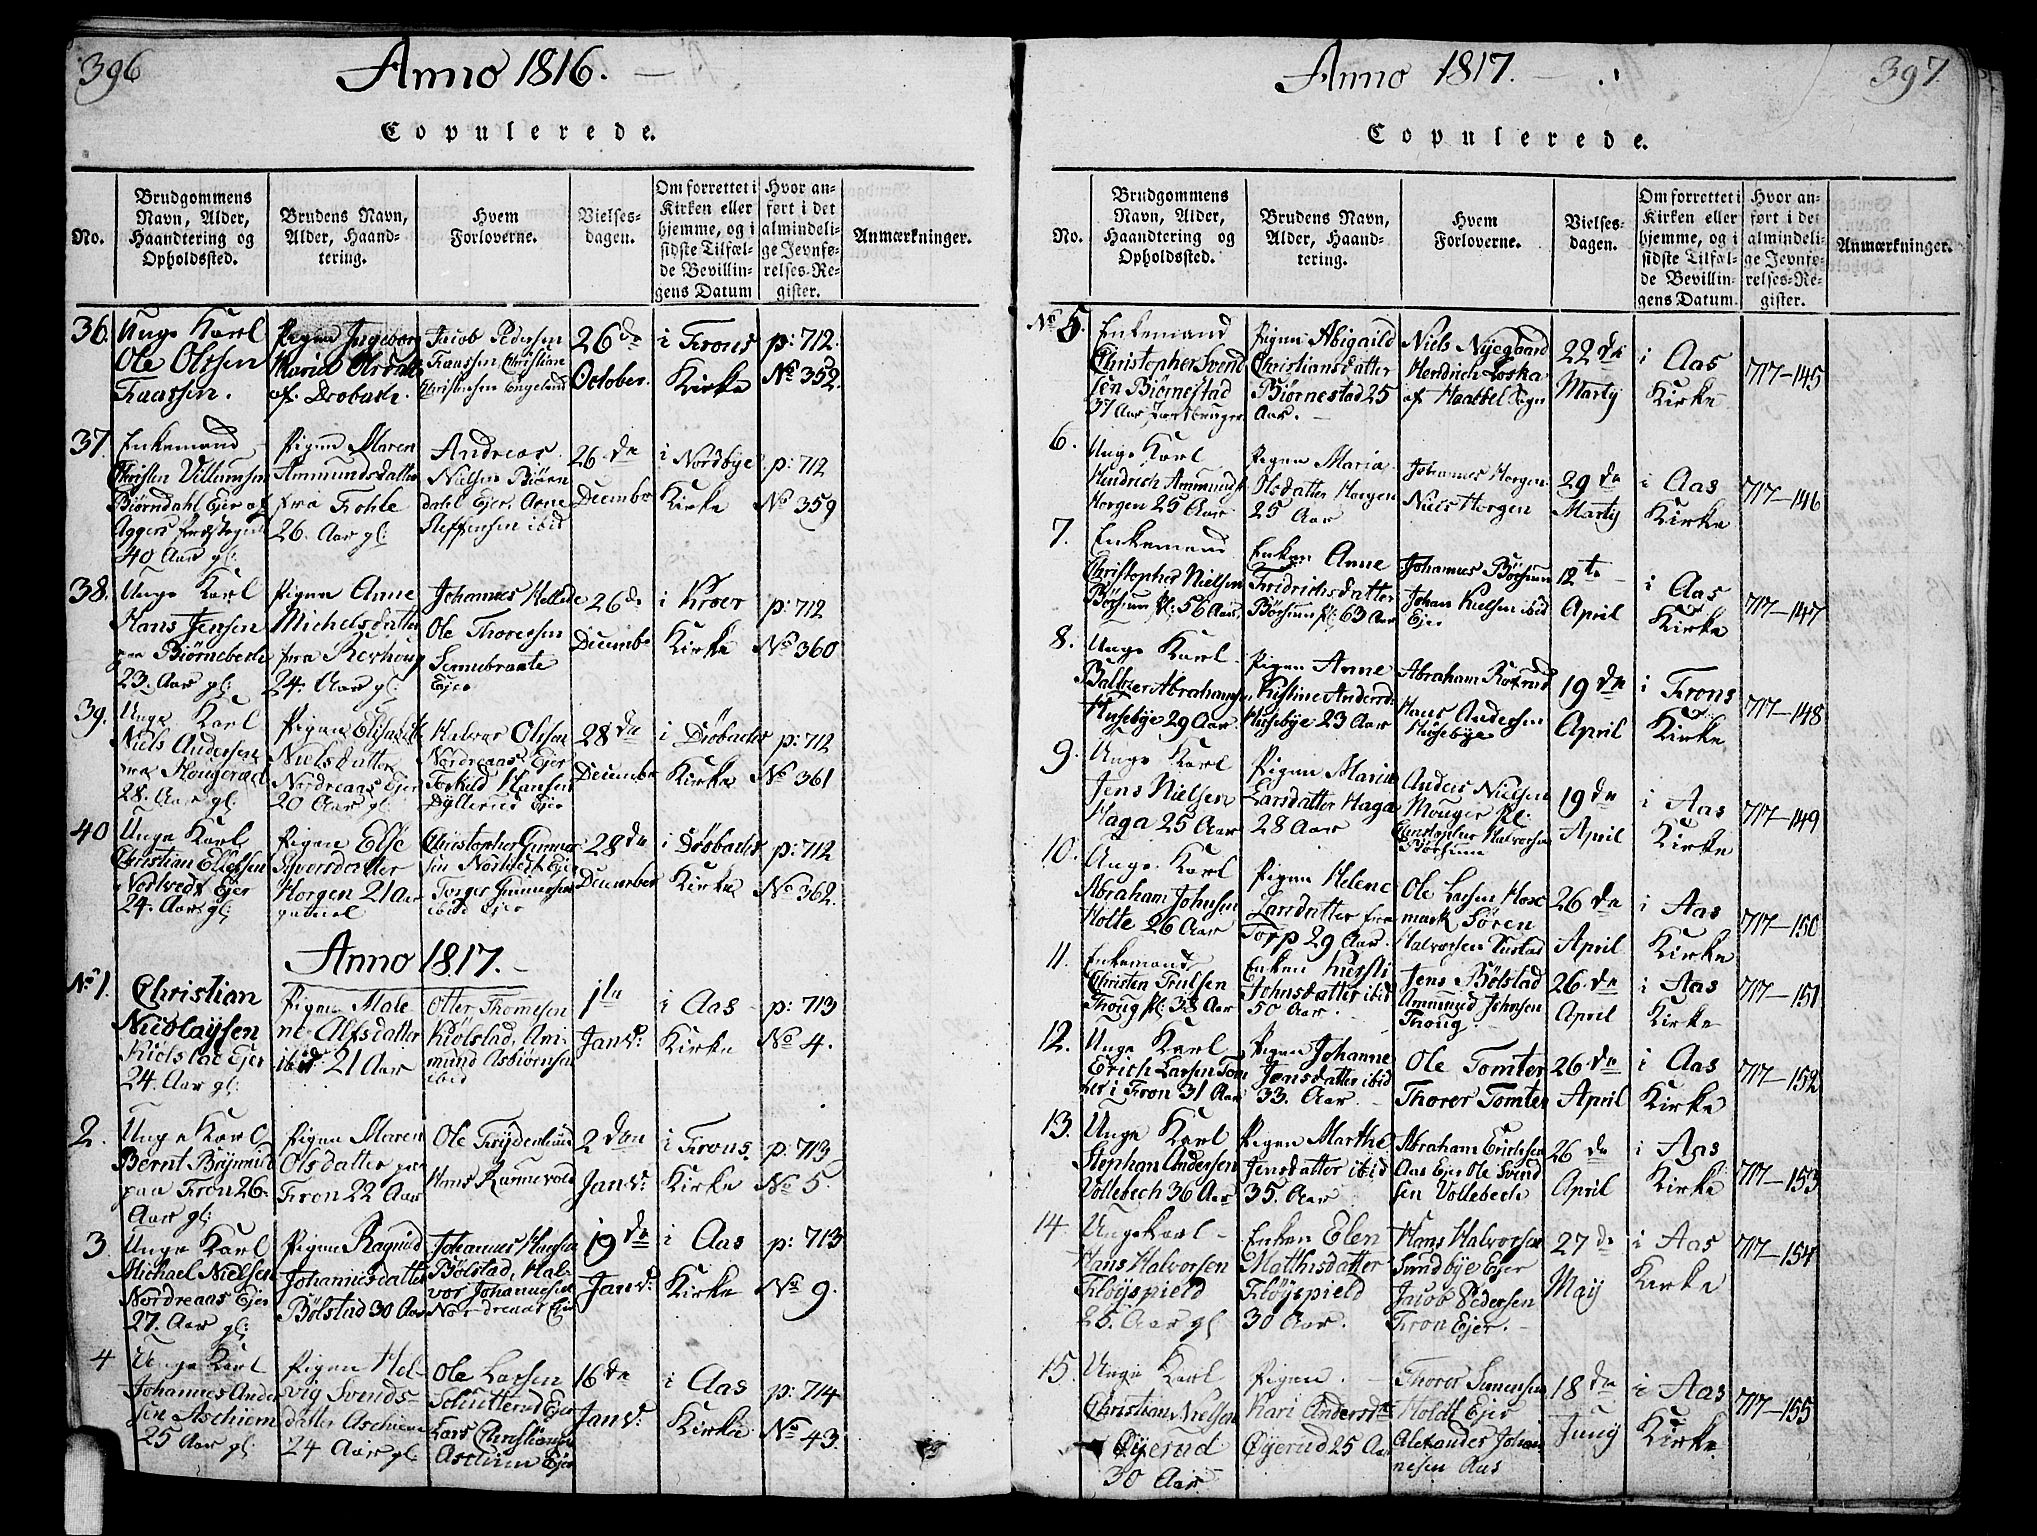 396
Anno 1816.
Copulerede.
No.
Brudgommens
Navn, Alder,
Haandtering og
Opholdssted.
Brudens Navn,
Alder, Haand-
tering.
Hvem
Forloverne.
Vielses-
dagen.
Om forrettet i
Kirken eller
hjemme, og i
sidste Tilfæl-
de Bevillin-
gens Datum
Hvor an-
ført i det
almindeli-
ge Jevnfø-
relses-Re-
gister.
Anmærkninger.
36.
Unge Karl
Ole Olssen
Faassen.
Pigen Ingebor
Maria
af Drobach.
Jacob Pedersen
Faassen Christian
Christensen Engelund
26de
October.
i Frons
Kirke
p: 712.
No 352.
37.
Enkemand
Christen Villumsen
Bjørndahl Ejer af
Aggers Præstegield
40 Aar gl:
Pigen Maren
Ammundsdatter
fra Fohle
26. Aar gl:
Andreas
Nielsen Biørn
dahl Ejer, Arne
Steffensen ibid
26 de
Decembr
i Nordbye
Kirke
p: 712
No 359
38.
Unge Karl
Hans Jensen
paa Biørnebech
23. Aar gl:
Pigen Anne
Michelsdatter
fra Revhoug
24. Aar gl:
Johannes Hellede
Ole Thoresen
Sennebraate
Ejer
26 de
Decembr
i Kroer
Kirke
p: 712
No 360
39.
Unge Karl
Niels Andersen
fra Hougerud
28. Aar gl:
Pigen Elisabeth
Nielsdatter
Nordreaas Ejer
20 Aar gl:
Halvor Olssen
Nordreaas Ejer
Torkild Hansen
Dyllerud Ejer
28 de
Decembr
i Drøbachs
Kirke
p: 712
No 361
40
Unge Karl
Christian Ellefsen
Nordvedt Ejer
24. Aar gl:
Pigen Else
Syversdatter
Horgen 21 Aar
gammel
Christopher Gunner
sen Nordvedt Ejer
Torger Gunnersen
ibid Ejer
28 de
December
i Drøbachs
Kirke
p: 712
No 362.
Anno 1817.
No 1.
Christian
Nicolaysen
Kiølstad Ejer
24. Aar gl:
Pigen Male
ne Alfsdatter
ibid: 21 Aar
Otter Thomesen
Kiølstad, Am-
mund Asbiørnsen
ibid
1te
Janv:
i Aas
Kirke
p: 713
No 4.
2.
Unge Karl
Bernt Brynnild
paa Fron 26.
Aar gl:
Pigen Maren
Olsdatter paa
Fron 22 Aar
Ole Frydenlund
Hans Rannevold
2 den
Janv:
i Frons
Kirke
p: 713
No 5.
3
Unge Karl
Michael Nielsen
Nordreaas Ejer
27. Aar gl:
Pigen Ragnild
Johannesdatter
Bølstad 30 Aar
Johannes Hansen
Bølstad, Hal-
vor Johannesen
Nordreaas Ejer
19 de
Janv:
i Aas
Kirke
p: 713
No 9.
4
Unge Karl
Johannes Ander
sen Aschiem
25 Aar gl:
Pigen Hel-
vig Svends-
datter Aschiem
24 Aar gl.
Ole Larsen
Schutterud Ejer
Lars Christiansen
Aschiem Ejer
16 de
Janv:
i Aas
Kirke
p: 714
No 43.
397
Anno 1817.
Copulerede.
No.
Brudgommens
Navn, Alder,
Haandtering og
Opholdssted.
Brudens Navn,
Alder, Haand-
tering.
Hvem
Forloverne.
Vielses-
dagen.
Om forrettet i
Kirken eller
hjemme, og i
sidste Tilfæl-
de Bevillin-
gens Datum.
Hvor an-
ført i det
almindeli-
ge Jevnfø-
relses-Re-
gister.
Anmærkninger.
No 5.
Enkemand
Christopher Svend
sen Biørnestad
37 Aar
Pigen Abigaild
Christiansdatter
Biørnestad 25
Aar.
Niels Nyegaard
Hendrich Loska
af Haabbel Sogn
22 de
Martj
i Aas
Kirke
717-145
6.
Unge Karl
Hindrich Ammunds
Horgen 25 Aar
Pigen Maria
Olsdatter Horgen
25 Aar
Johannes Horgen
Niels Horgen
29 de
Martj
i Aas
Kirke
717-146
7.
Enkemand
Christopher Nielsen
Børsum Pl: 56 Aar.
Enken Anne
Fridrichsdatter
Børsum Pl: 63 Aar
Johannes Børsum
Johan Nielsen ibid
Ejer
12 te
April
i Aas
Kirke
717-147
8.
Unge Karl.
Baltzer Abrahamsen
Husebye 29 Aar
Pigen Anne
Kirstine Andersd
Husebye 23 Aar
Abraham Roterud
Hans Andersen
Husebye
19 de
April
i Frons
Kirke
717-148
9.
Unge Karl
Jens Nielsen
Haga 25 Aar
Pigen Maria
Larsdatter Haga
28 Aar
Anders Nielsen
Mouger Pl:
Christopher Halvorsen
Børsum
19 de
April
i Aas
Kirke
717-149
10.
Unge Karl
Abraham Johnsen
Holte 26 Aar
Pigen Helene
Larsdatter fra
Torp 29 Aar.
Ole Larsen Hox
mark Søren
Halvorsen Kustad
26 de
April
i Aas
Kirke
717-150
11.
Enkemand
Christen Trulsen
Thoug Pl: 38 Aar
Enken Kirsti
Johnsdatter ibid
50 Aar.
Jens Bølstad
Ammund Johnsen
Thoug.
26. de
April
i Aas
Kirke
717-151
12.
Unge Karl
Erich Larsen Tom
ter i Fron 31 Aar
Pigen Johanne
Jensdatter ibid
33. Aar
Ole Tomter
Thorer Tomter
26 de
April
i Aas
Kirke
717-152
13.
Unge Karl
Stephan Andersen
Vollebech 36 Aar
Pigen Marthe
Jensdatter ibid
35. Aar
Abraham Erichsen
Aas Ejer Ole Svend
sen Vollebech
26 de
April
i Aas
Kirke
717-153
14
Ungekarl
Hans Halvorsen
Fløyspield
25. Aar gl
Enken Elen
Mathisdatter
Fløyspield
30 Aar.
Hans Halvorsen
Sundbye Ejer
Jacob Pedersen
Fron Ejer.
27 de
Maij
i Aas
Kirke
717-154
15.
Unge Karl
Christian Nielsen
Øyerud
30 Aar
Pigen.
Kari Andersdtr
Øyerud 25 Aar
Thorer Simensen
Holdt Ejer
Alexander Johan
nesen Aas
18 de
Junij
i Aas
Kirke
717-155